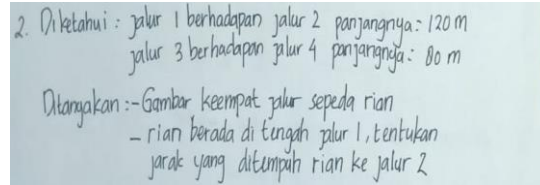 2. Diketahui : jalur 1 berhadapan jalur 2 panjangnya = 120 m
jalur 3 berhadapan jalur 4 panjangnya = 80 m
Ditanyakan : - Gambar keempat jalur sepeda rian
- rian berada di tengah jalur 1, tentukan
jarak yang ditempuh rian ke jalur 2